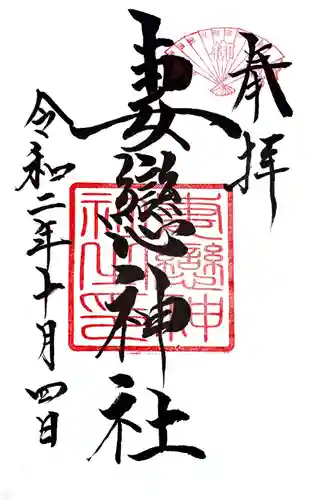 奉拝
妻戀神社
令和二年十月四日
妻戀神
社之印